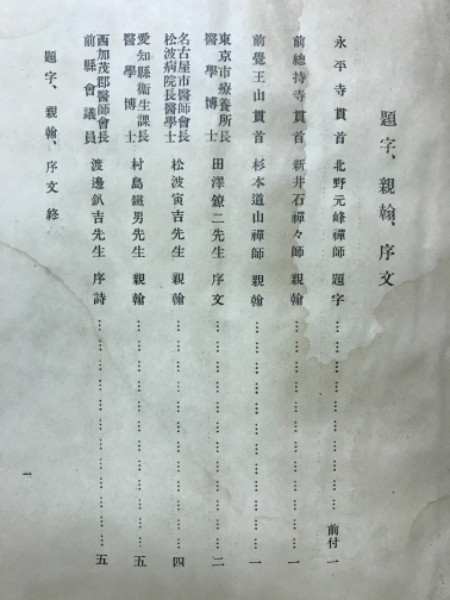 題字、親翰、序文
永平寺貫首 北野元峰禪師 題字………………………………前付 一
前總持寺貫首 新井石禪々師 親翰………………………………一
前覺王山貫首 杉本道山禪師 親翰………………………………一
東京市療養所長
醫學博士 田澤鐐二先生 序文………………………………二
名古屋市醫師會長
松波病院長醫學士 松波寅吉先生 親翰………………………………四
愛知縣衞生課長
醫學博士 村島鐵男先生 親翰………………………………五
西加茂郡醫師會長
前縣會議員 渡邊釟吉先生 序詩………………………………五
題字、親翰、序文 終
一